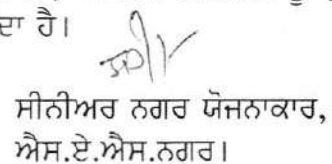 ਦਾ ਹੈ।
ਸੀਨੀਅਰ ਨਗਰ ਯੋਜਨਾਕਾਰ,
ਐਸ.ਏ.ਐਸ.ਨਗਰ।